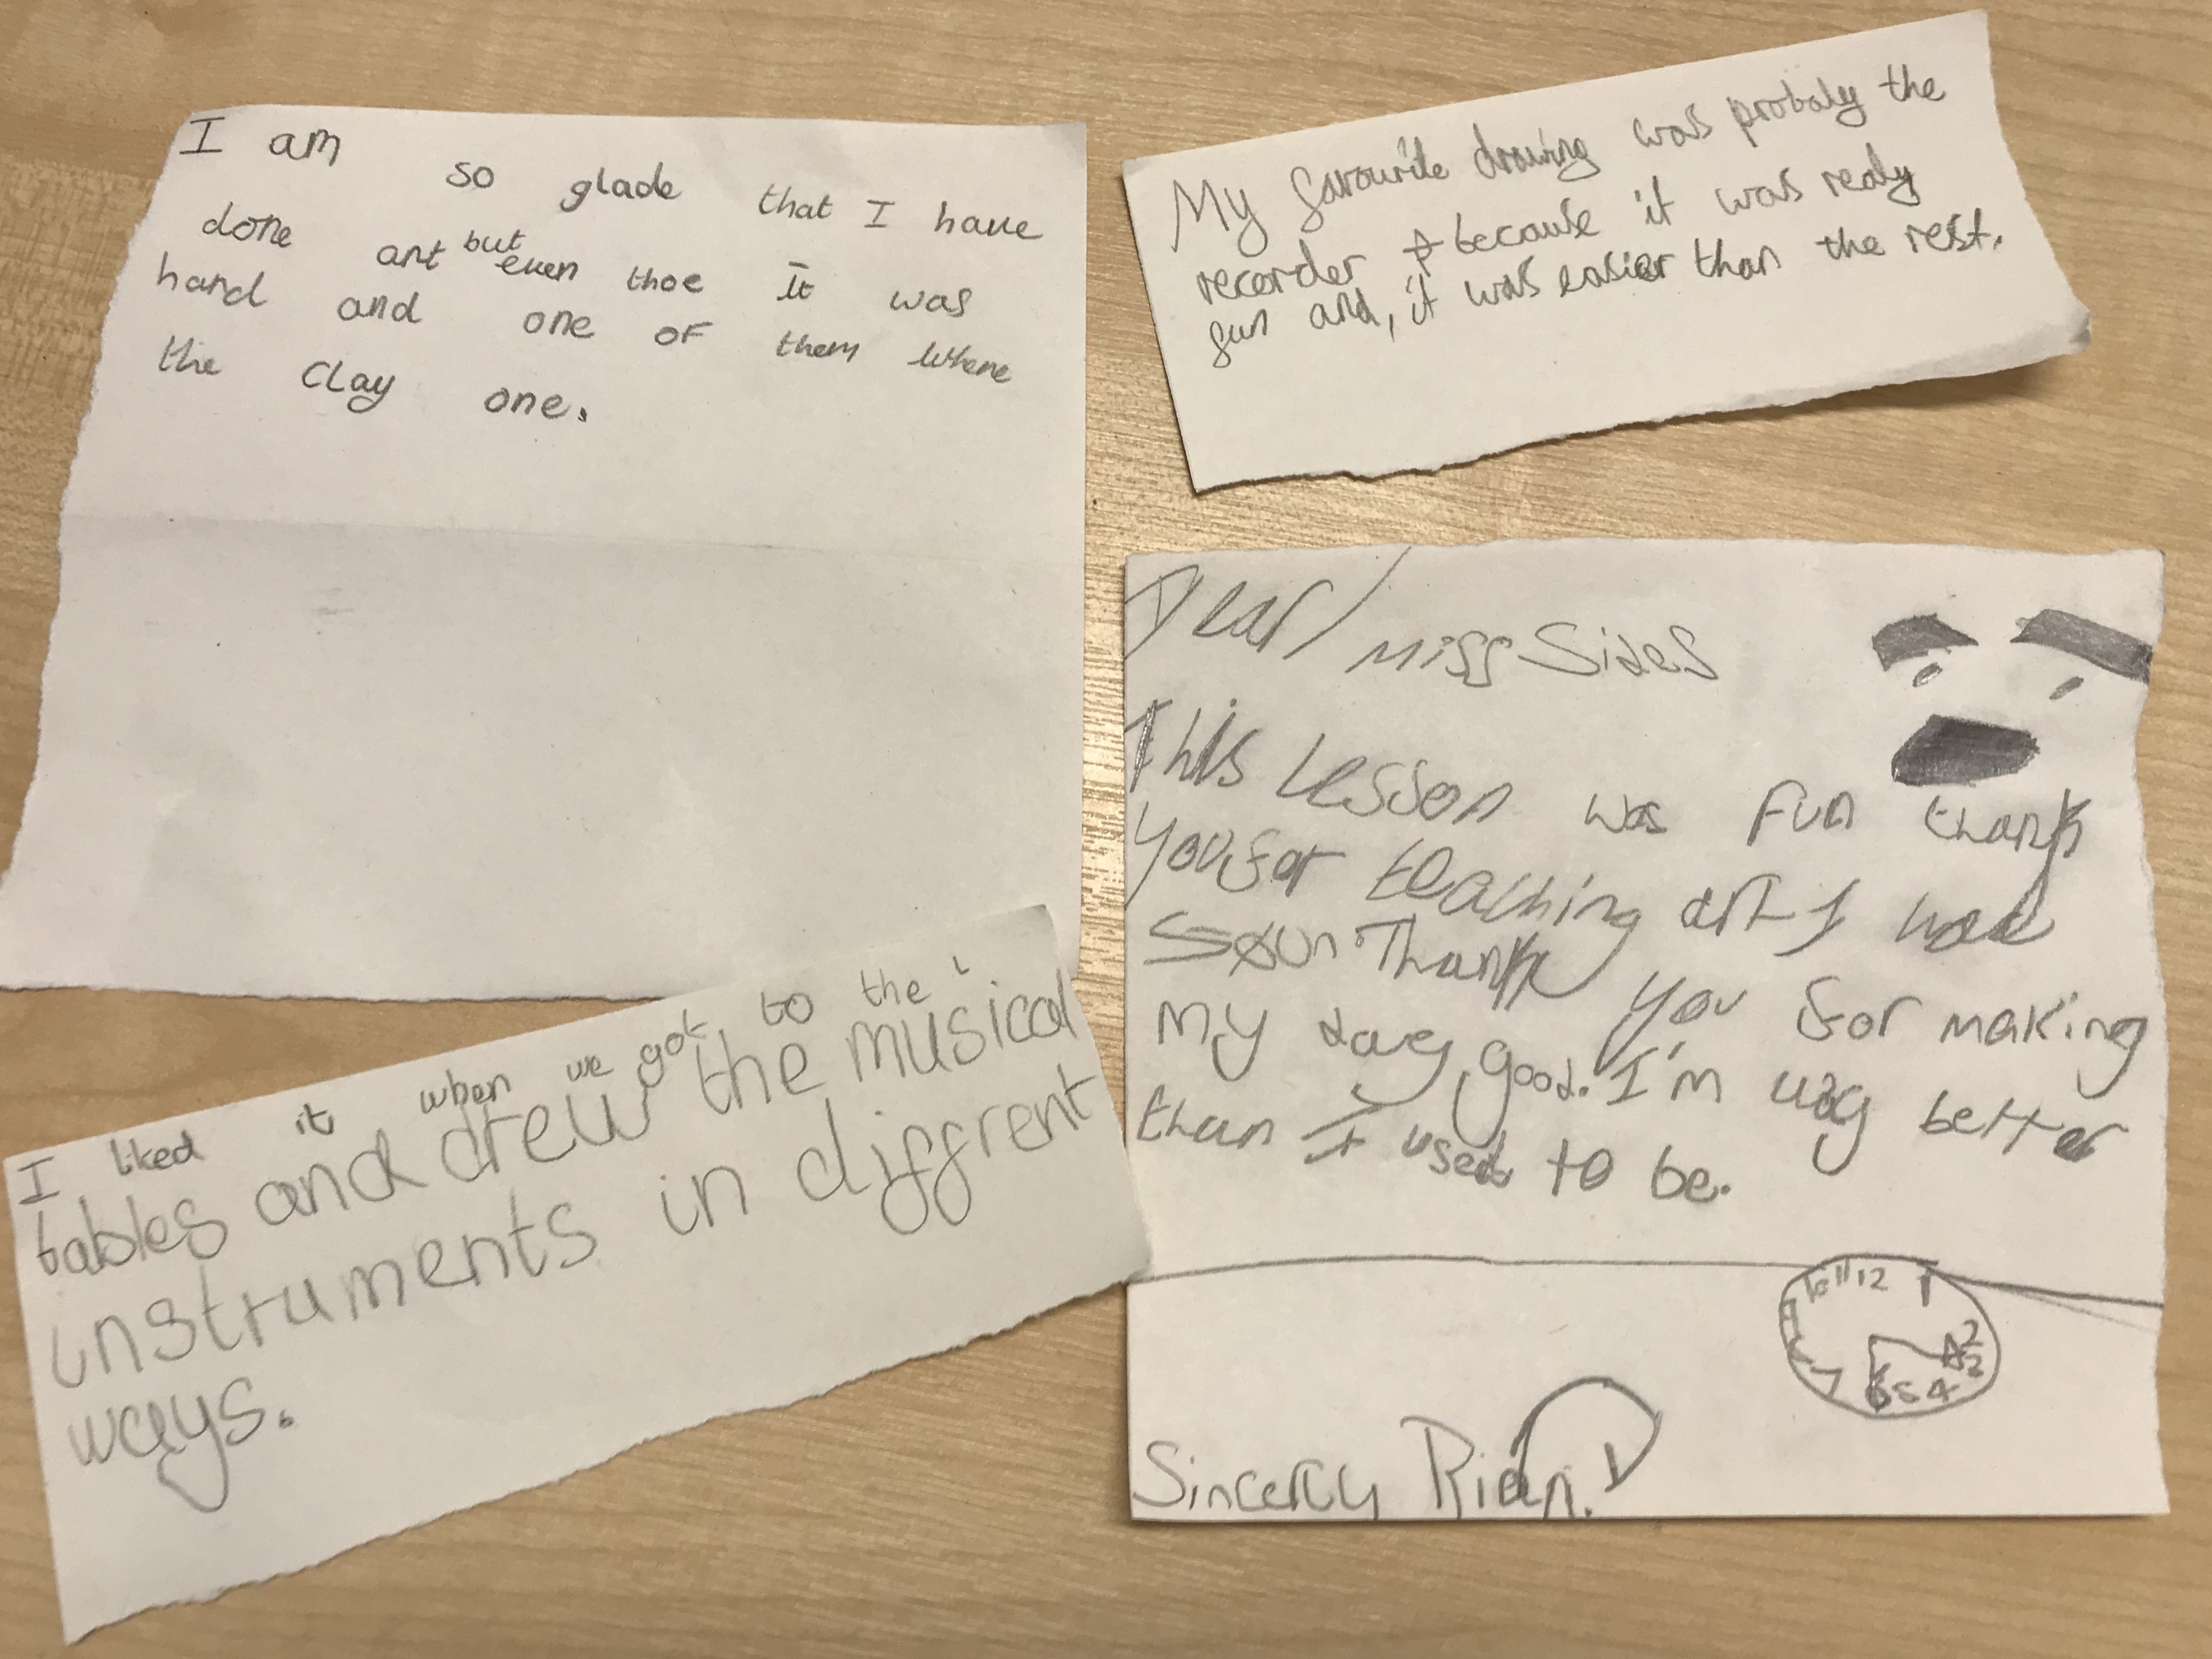 I am so glade that I have
done art but even thoe it was
hard and one of them where
the clay one.
My favourite drawing was probaly the
recorder because it was realy
fun and, it was easier than the rest.
Dear/ Miss Sides
This Lesson was fun thank
you for teaching art I was
Thank you for making
my day good. I'm way better
than I used to be.
10 11 12 1
2
7 6 5 4
Sincerly Rian.
I liked it when we got to the
tables and drew the musical
instruments in diffrent
ways.